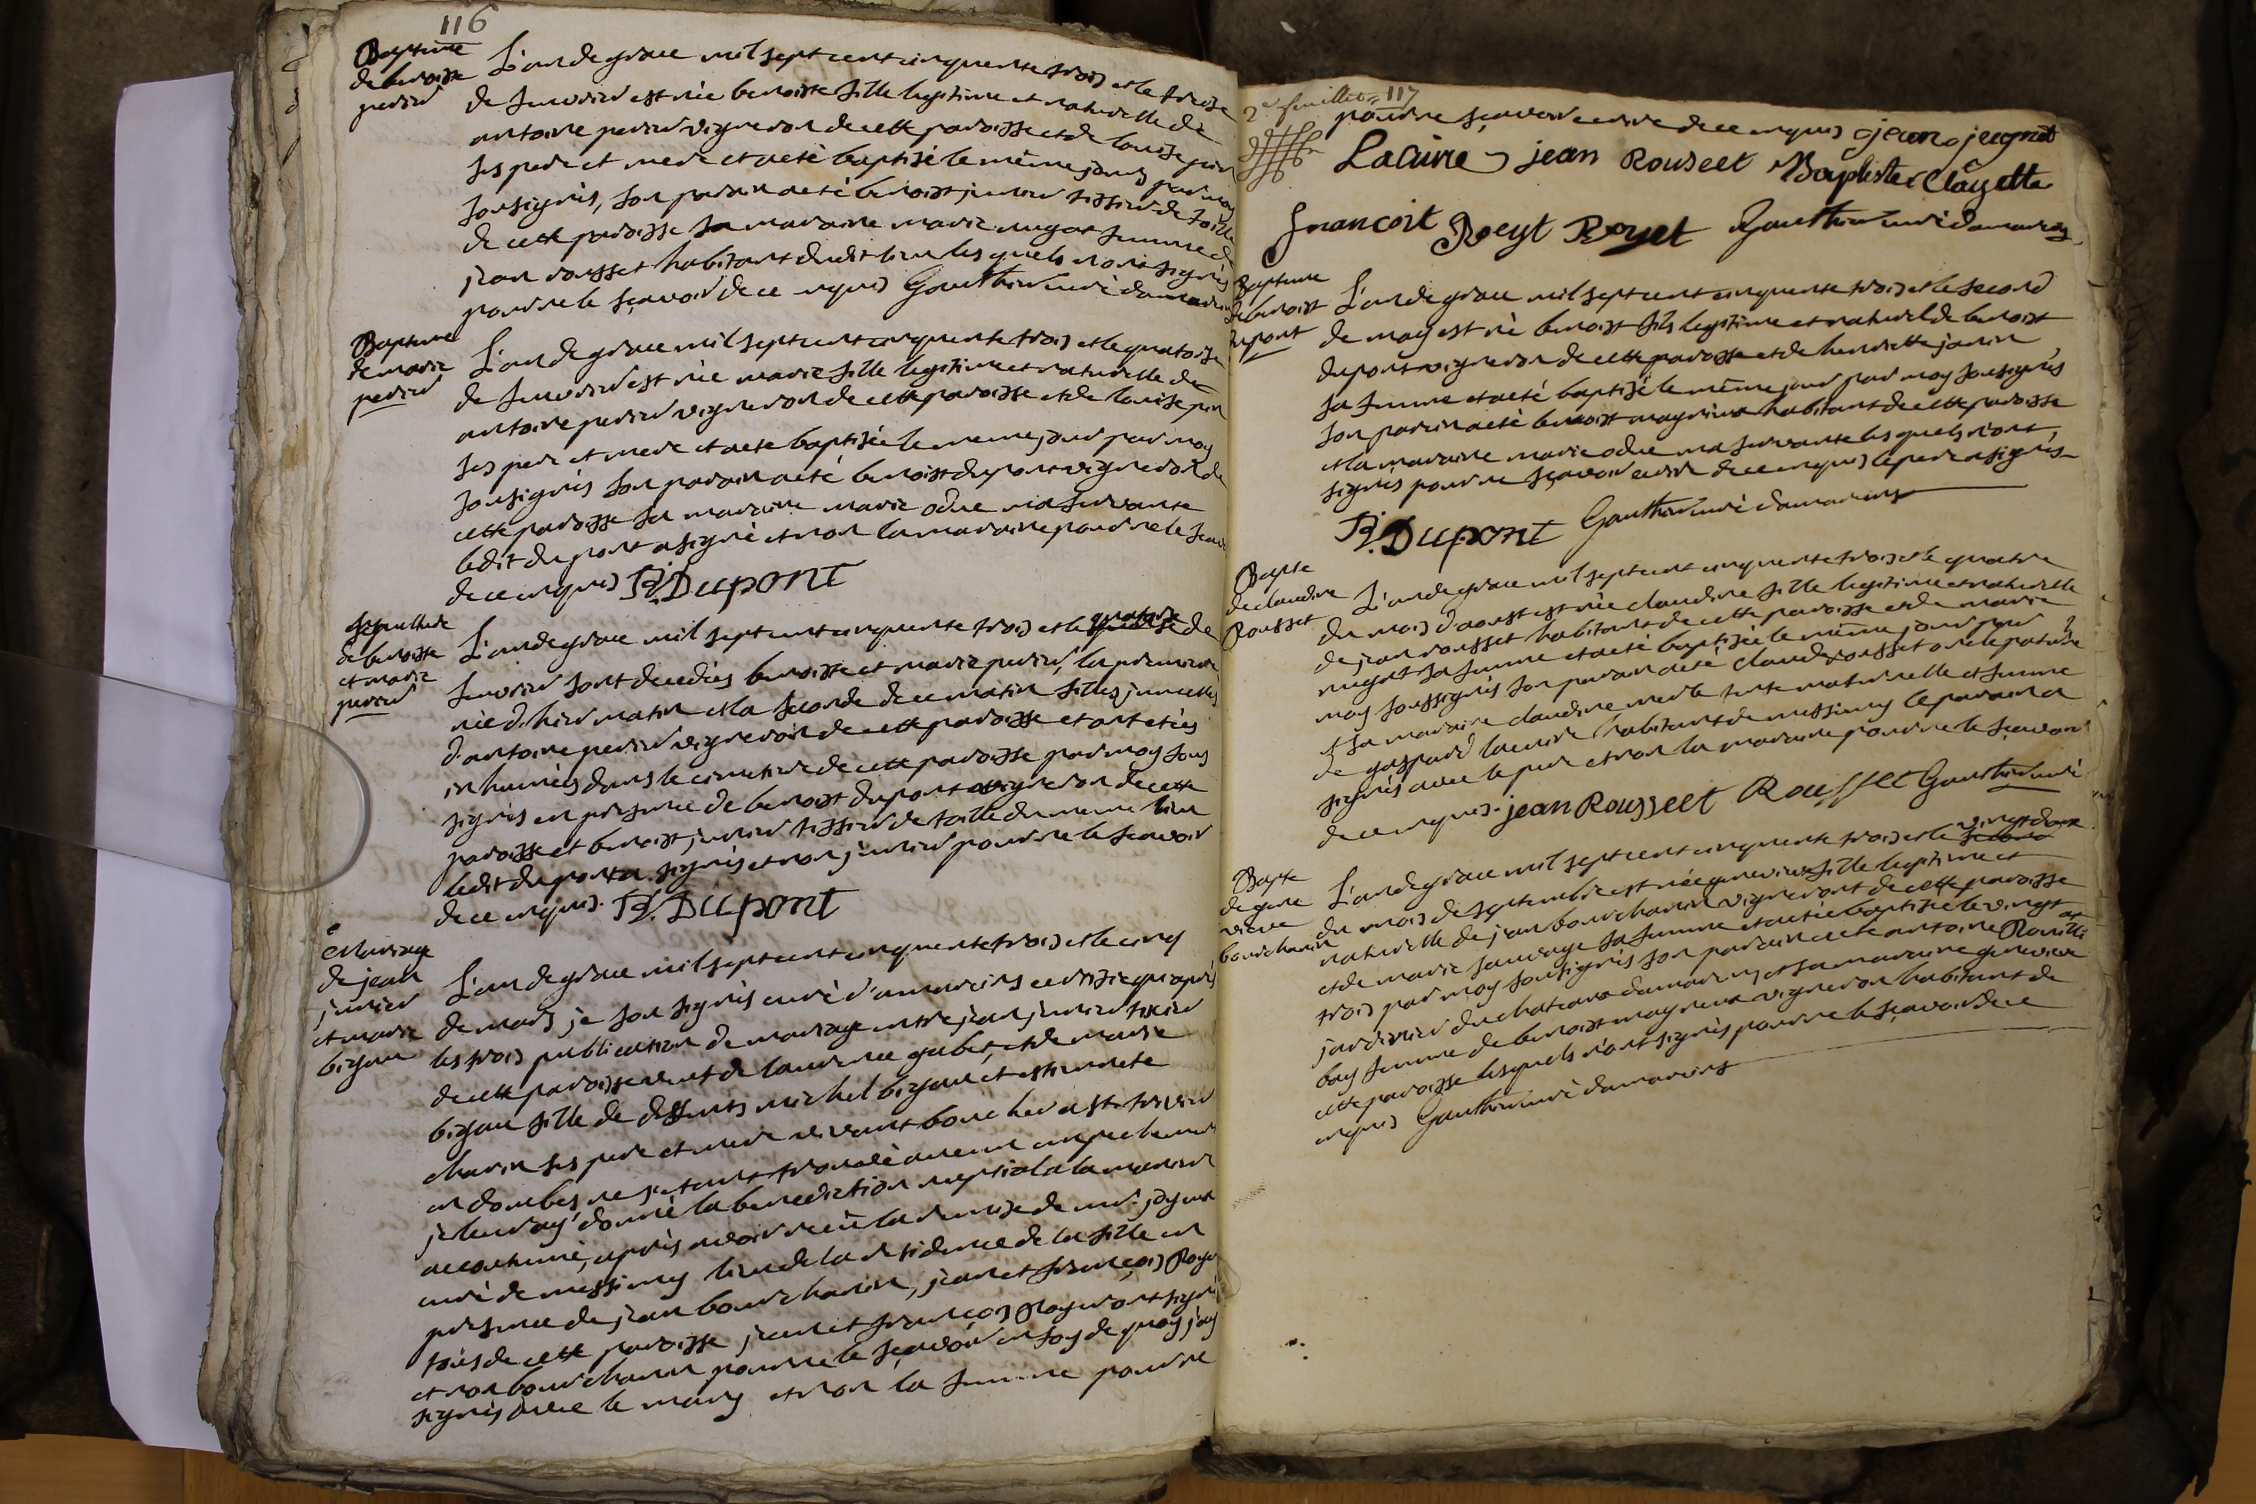 116
Baptême
de benoiste
perier
L'an de grace mil sept cent cinquante trois et le treise
de fevrier est née benoiste fille legitime et naturelle de
antoine perier vigneron de cette paroisse et de louise
ses pere et mere et a eté baptisé le même jour par moy
sousignés, son parain a eté benoist junier tissier de toille
de cette paroisse sa maraine marie mugat femme de
jean rousset habitant dudit lieu les quels n'ont signés
pour ne le sçavoir de ce enquis Gauthier curé damareins
Baptême
de marie
perier
L'an de grace mil sept cent cinquante trois et le quatorse
de fevrier est née marie fille legitime et naturelle de
antoine perier vigneron de cette paroisse et de louise
ses pere et mere et a eté baptisée le meme jour par moy
sousignés son parain a eté benoist dupont vigneron de
cette paroisse sa maraine marie odue ma servante
ledit dupont a signé et non la maraine pour ne le scavoir
de ce enquis B. Dupont
Sepulture
de benoiste
et marie
perier
L'an de grace mil sept cent cinquante trois et le quatorse de
fevrier sont decedées benoiste et marie perier, la premiere
née d'hier matin et la seconde de ce matin filles jumelles
d'antoine perier vigneron de cette paroisse et ont etées
inhumées dans le cimetiere de cette paroisse par moy sous
signés en presence de benoist dupont vigneron de cette
paroisse et benoist junier tissier de toille du meme lieu
ledit dupont a signés et non junier pour ne le scavoir
de ce enquis. B. Dupont
Mariage
de jean
junier
et marie
bizan
L'an de grace mil sept cent cinquante trois et le cinq
de mars je sousignés curé d'amareins certifie qu'après
les trois publication de mariage entre jean junier
de cette paroisse veuf de laurence gabet, et de marie
bizan fille de deffunts michel bizan et estiennete
charin ses pere et mere vivant boucher a st trivier
en dombes ne s'etant trouvé aucun empechement
je leur ay donné la benediction nuptiale a la maniere
accoutumé, après avoir receu la remise de mr
curé de messimy lieu de la residence de la fille en
presence de jean bourcharin, jean et françois Roye
tous de cette paroisse jean et françois Roye ont signé
et non bourcharin pour ne le sçavoir en foy de quoy j'ay
signés avec le mary et non la femme pour ne
2e feuillet 117
pour ne sçavoir ecrire de ce enquis jean jugnet
Lacuire jean Rouseet Baptiste Clayette
francoit Roeyt Royet Gauthier curé damareins
Bapteme
de benoist
dupont
L'an de grace mil sept cent cinquante trois et le second
de may est né benoist fils legitime et naturel de benoist
dupont vigneron de cette paroisse et de henriette janin
sa femme et a eté baptisé le même jour par moy sousignés
son parin a eté benoist magnien habitant de cette paroisse
et la maraine marie odue ma servante les quels n'ont
signés pour ne sçavoir ecrire de ce enquis le pere a signés
B. Dupont Gauthier curé damareins
Bapte
de claudine
Rousset
L'an de grace mil sept cent cinquante trois et le quatre
du mois d'aoust est née claudine fille legitime et naturelle
de jean rousset habitant de cette paroisse et de marie
mugat sa femme et a eté baptisée le même jour par
moy soussignés son parain a eté claude rousset oncle paternel
et sa maraine claudine merle tante maternelle et femme
de gaspard lacuire habitant de messimy le parain a
signés avec le pere et non la maraine pour ne le sçavoir
de ce enquis. jean Rousseet Rousset Gauthier curé
Bapte
de gene
vieve
bourcharin
L'an de grace mil sept cent cinquante trois et le vingt deux
du mois de septembre est née genevieve fille legitime et
naturelle de jean bourcharin vigneront de cette paroisse
et de marie sauvage sa femme et a eté baptisée le vingt
trois par moy sousignés son parain a eté antoine Rouillat
jardinier du chateau damareins et sa maraine genevieve
bay femme de benoist magnien vigneron habitant de
cette paroisse lesquels n'ont signés pour ne le sçavoir de ce
enquis Gauthier curé damareins